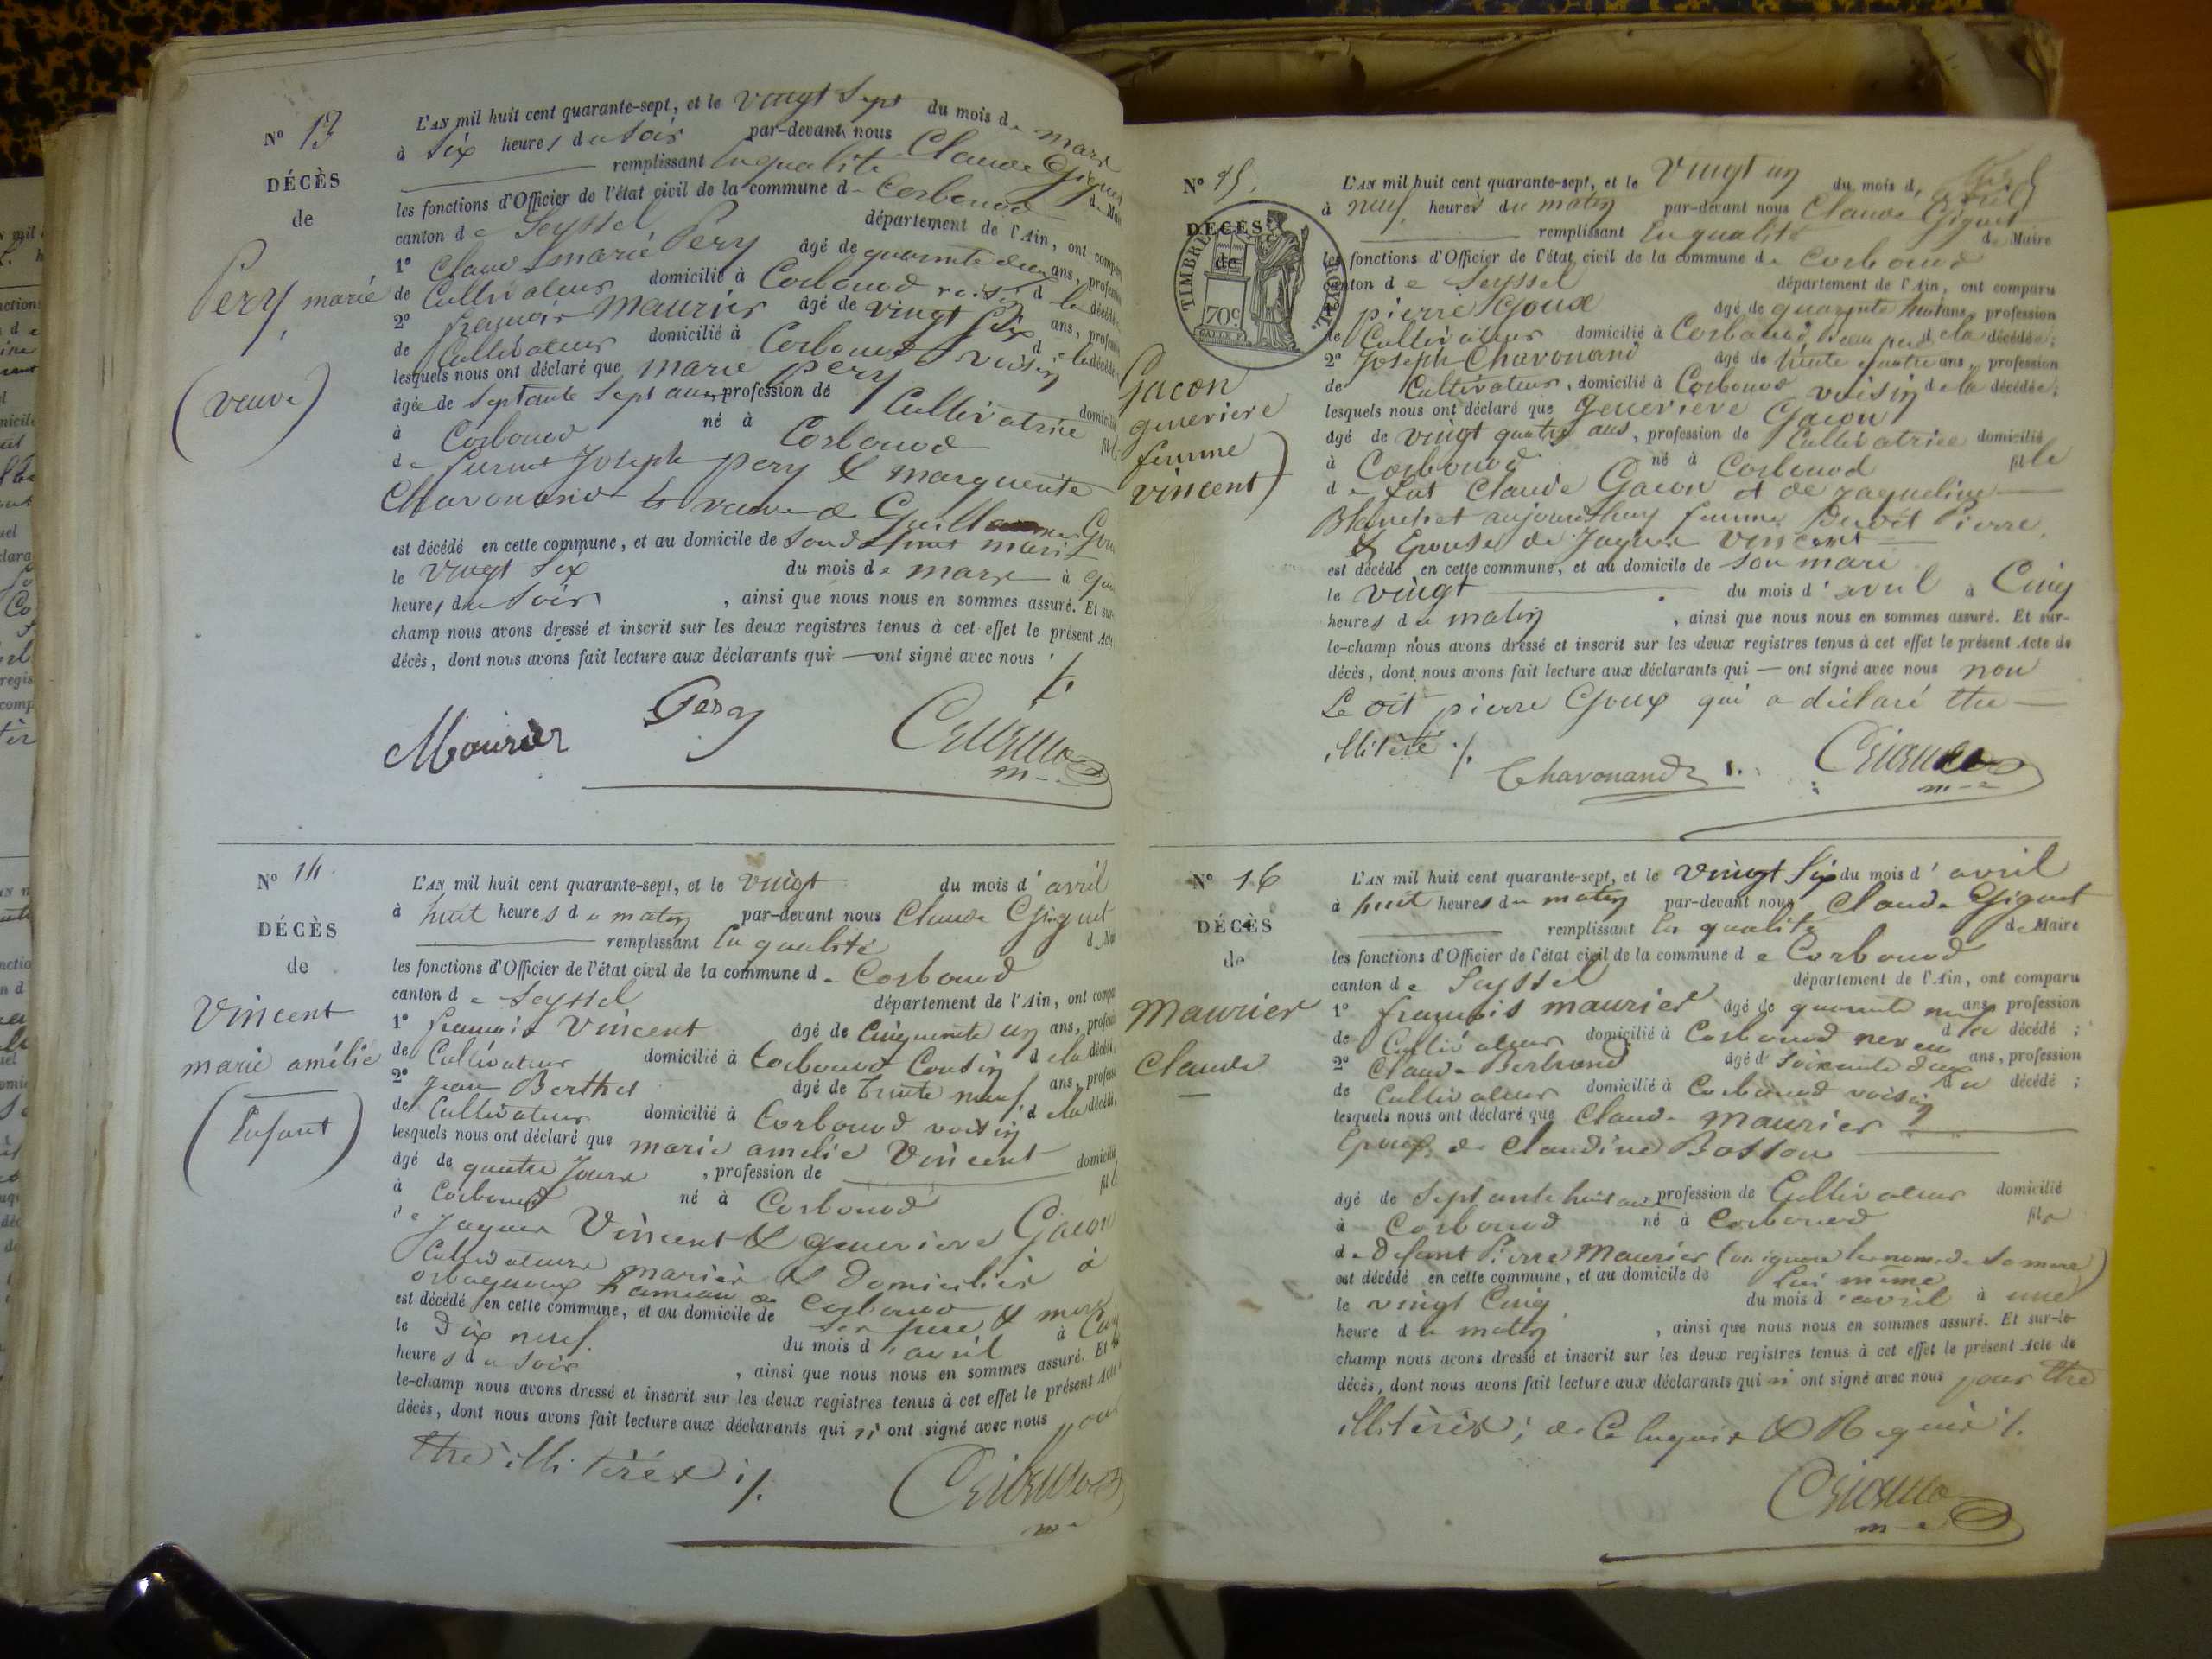 N° 13
DÉCÈS
de
Pery marie
(veuve)
L'AN mil huit cent quarante-sept, et le vingt sept du mois de mars
à six heures du soir par-devant nous Claude Giguet
remplissant en qualité d. Mai
les fonctions d'Officier de l'état civil de la commune de Corbonod
canton de Seyssel département de l'Ain, ont compa
1° Claude marie Pery âgé de quarante deux ans, profession
de Cultivateur domicilié à Corbonod voisin d la décédée
2° françois Maurier âgé de vingt six ans, profes
de Cultivateur domicilié à Corbonod voisin de la décédé
lesquels nous ont déclaré que marie pery
âgée de septante sept ans profession de Cultivatrice domicilié
à Corbonod né à Corbonod fil
de furent Joseph pery & marguerite
Chavonand & veuve de Guillaume
est décédé en cette commune, et au domicile de mari
le vingt six du mois de mars à
heures du soir , ainsi que nous nous en sommes assuré. Et sur
champ nous avons dressé et inscrit sur les deux registres tenus à cet effet le présent Acte
décès, dont nous avons fait lecture aux déclarants qui — ont signé avec nous ./.
Maurier Pery
N° 14
DÉCÈS
de
Vincent
marie amélie
(Enfant)
L'AN mil huit cent quarante-sept, et le vingt du mois d'avril
à huit heures du matin par-devant nous Claude Giguet
remplissant en qualité d. Mai
les fonctions d'Officier de l'état civil de la commune de Corbonod
canton de Seyssel département de l'Ain, ont compa
1° françois Vincent âgé de Cinquante un ans, profes
de Cultivateur domicilié à Corbonod Cousin de la décédé
2° jean Berthet âgé de trente neuf ans, profess
de Cultivateur domicilié à Corbonod voisin de la décédé
lesquels nous ont déclaré que marie amelie Vincent
âgé de quatre jours , profession de domicilié
à Corbonod né à Corbonod fil
de Jaques Vincent & genevieve Gacon
Cultivateurs mariés & domiciliés à
orbagnoux hameau de Corbonod
est décédé en cette commune, et au domicile de ses pere & mere
le Dix neuf du mois d'avril à Cinq
heures du soir , ainsi que nous nous en sommes assuré. Et
le-champ nous avons dressé et inscrit sur les deux registres tenus à cet effet le présent Acte
décès, dont nous avons fait lecture aux déclarants qui n'ont signé avec nous pour
être illitérés ./.
N° 15.
DÉCÈS
de
TIMBRE ROYAL.
70c
Gacon
genevieve
femme
vincent)
L'AN mil huit cent quarante-sept, et le vingt un du mois d'avril
à neuf heures du matin par-devant nous Claude Giguet
remplissant en qualité de Maire
les fonctions d'Officier de l'état civil de la commune de Corbonod
canton de Seyssel département de l'Ain, ont comparu
pierre Goux âgé de quarante huit ans, profession
de Cultivateur domicilié à Corbonod, beau pere de la décédée;
2° Joseph Chavonand âgé de trente quatre ans, profession
de Cultivateur, domicilié à Corbonod voisin de la décédée;
lesquels nous ont déclaré que genevieve Gacon
âgé de vingt quatre ans, profession de Cultivatrice domicilié
à Corbonod né à Corbonod fille
de fut Claude Gacon et de jaqueline
Blanchet aujourdhuy femme Pierre
& Epouse de Jaques vincent
est décédé en cette commune, et au domicile de son mari
le vingt du mois d'avril à Cinq
heures du matin , ainsi que nous nous en sommes assuré. Et sur-
le-champ nous avons dressé et inscrit sur les deux registres tenus à cet effet le présent Acte de
décès, dont nous avons fait lecture aux déclarants qui — ont signé avec nous non
Le dit pierre Goux qui a déclaré être
illitéré ./.
Chavonand
N° 16
DÉCÈS
de
Maurier
Claude
L'AN mil huit cent quarante-sept, et le vingt six du mois d'avril
à huit heures du matin par-devant nous Claude Giguet
remplissant en qualité de Maire
les fonctions d'Officier de l'état civil de la commune de Corbonod
canton de Seyssel département de l'Ain, ont comparu
1° françois maurier âgé de quarante neuf ans, profession
de Cultivateur domicilié à Corbonod neveu du décédé;
2° Claude Bertrand âgé de soixante deux ans, profession
de Cultivateur domicilié à Corbonod voisin du décédé;
lesquels nous ont déclaré que Claude Maurier
Epoux de Claudine Bosson
âgé de septante huit ans profession de Cultivateur domicilié
à Corbonod né à Corbonod fils
de defunt Pierre Maurier (on ignore le nom de sa mere)
est décédé en cette commune, et au domicile de lui même
le vingt Cinq du mois d'avril à une
heure du matin , ainsi que nous nous en sommes assuré. Et sur-le-
champ nous avons dressé et inscrit sur les deux registres tenus à cet effet le présent Acte de
décès, dont nous avons fait lecture aux déclarants qui n'ont signé avec nous pour être
illitérés; de Ce Enquis & Requis ./.